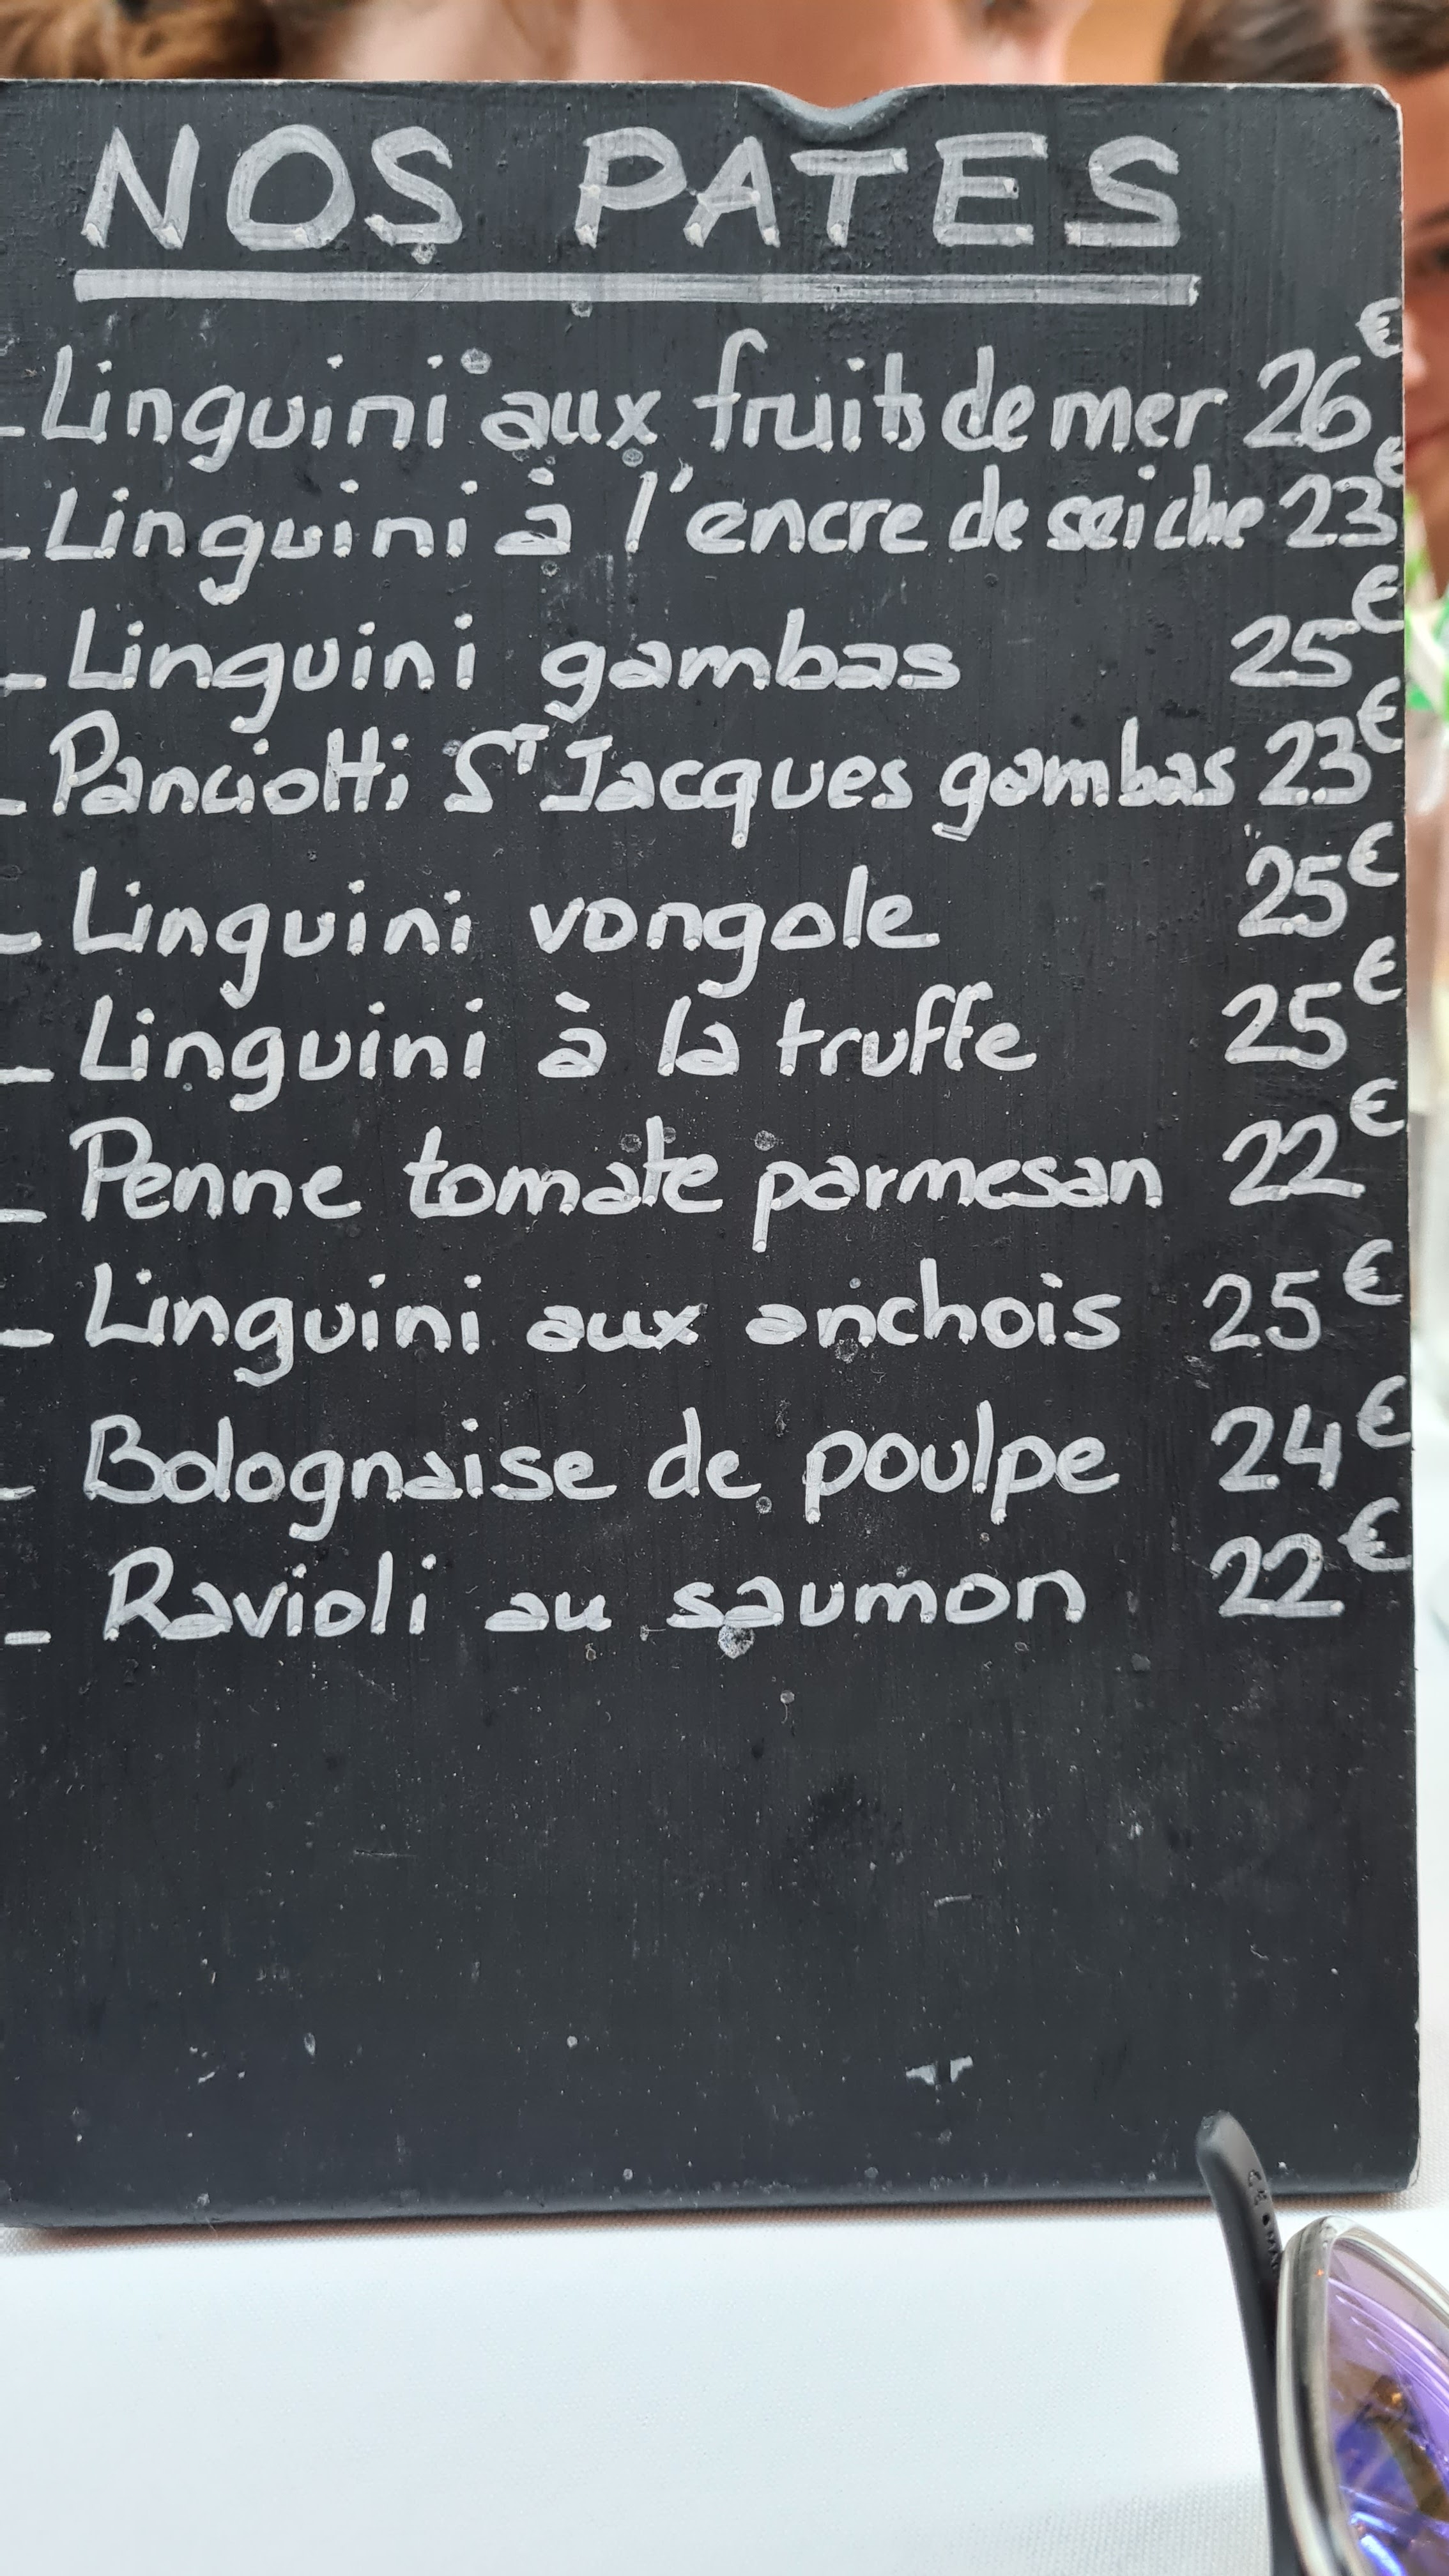 NOS PATES
- Linguini aux fruits de mer 26€
- Linguini à l'encre de seiche 23€
- Linguini gambas 25€
- Panciotti St Jacques gambas 23€
- Linguini vongole 25€
- Linguini à la truffe 25€
- Penne tomate parmesan 22€
- Linguini aux anchois 25€
- Bolognaise de poulpe 24€
- Ravioli au saumon 22€